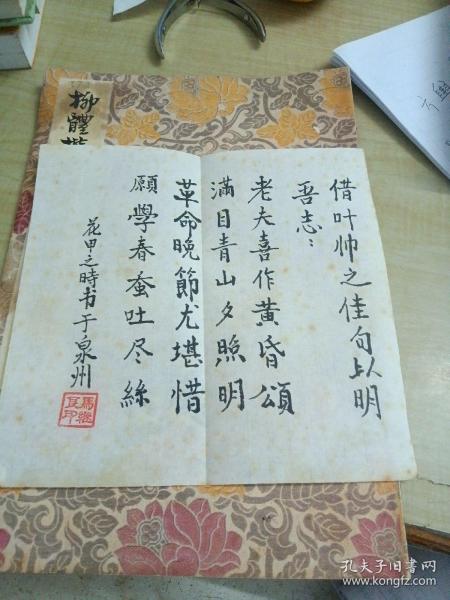 借叶帅之佳句以明
吾志：
老夫喜作黄昏頌
滿目青山夕照明
革命晚節尤堪惜
願學春蚕吐尽絲
花甲之時书于泉州
柳體楷
孔夫子旧书网
www.kongfz.com